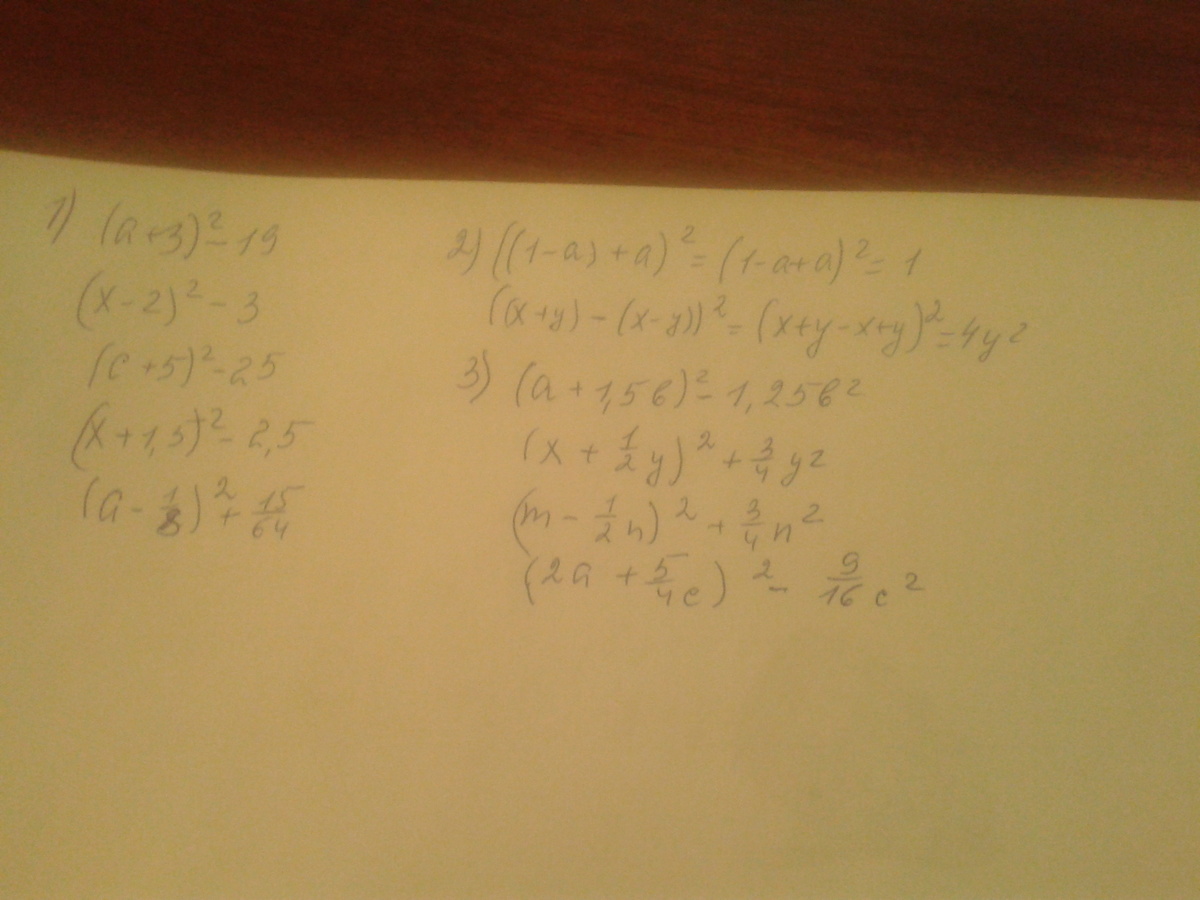 1) (a+3)² - 19
(x-2)² - 3
(c+5)² - 25
(x+1,5)² - 2,5
(a - 1/8)² + 15/64
2) ((1-a)+a)² = (1-a+a)² = 1
((x+y) - (x-y))² = (x+y-x+y)² = 4y²
3) (a+1,5b)² - 1,25b²
(x + 1/2 y)² + 3/4 y²
(m - 1/2 n)² + 3/4 n²
(2a + 5/4 c)² - 9/16 c²